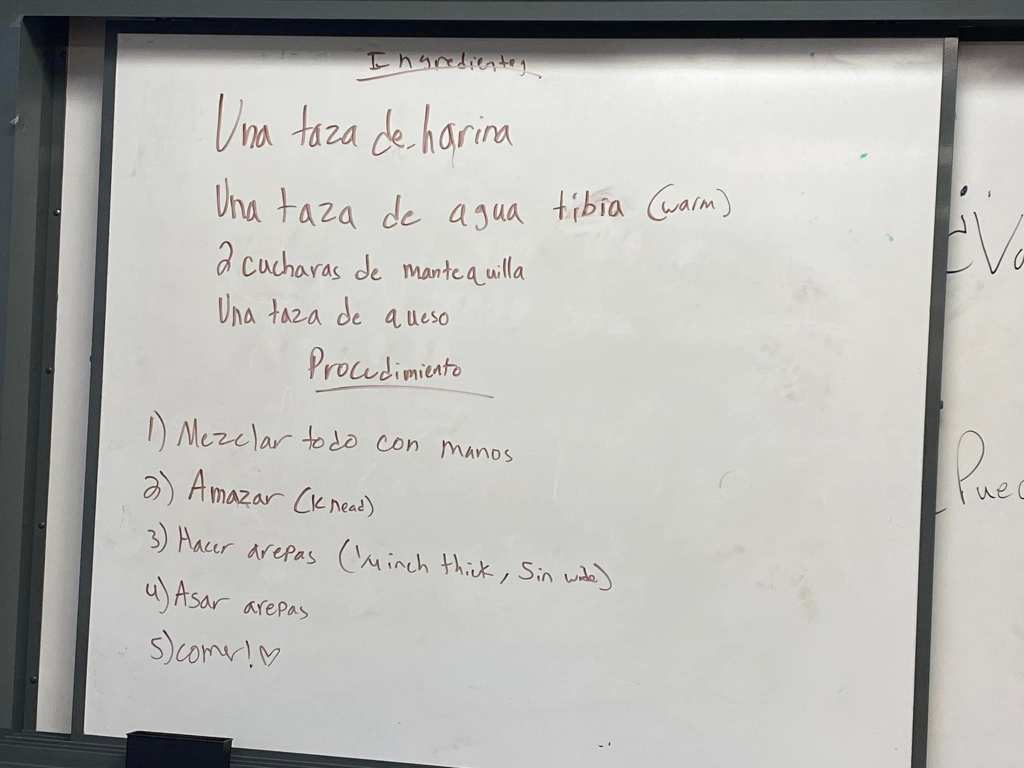 Ingredientes
Una taza de harina
Una taza de agua tibia (warm)
2 cucharas de mantequilla
Una taza de queso
Procedimiento
1) Mezclar todo con manos
2) Amazar (Knead)
3) Hacer arepas (1/4 inch thick, 5in wide)
4) Asar arepas
5) comer! ♡